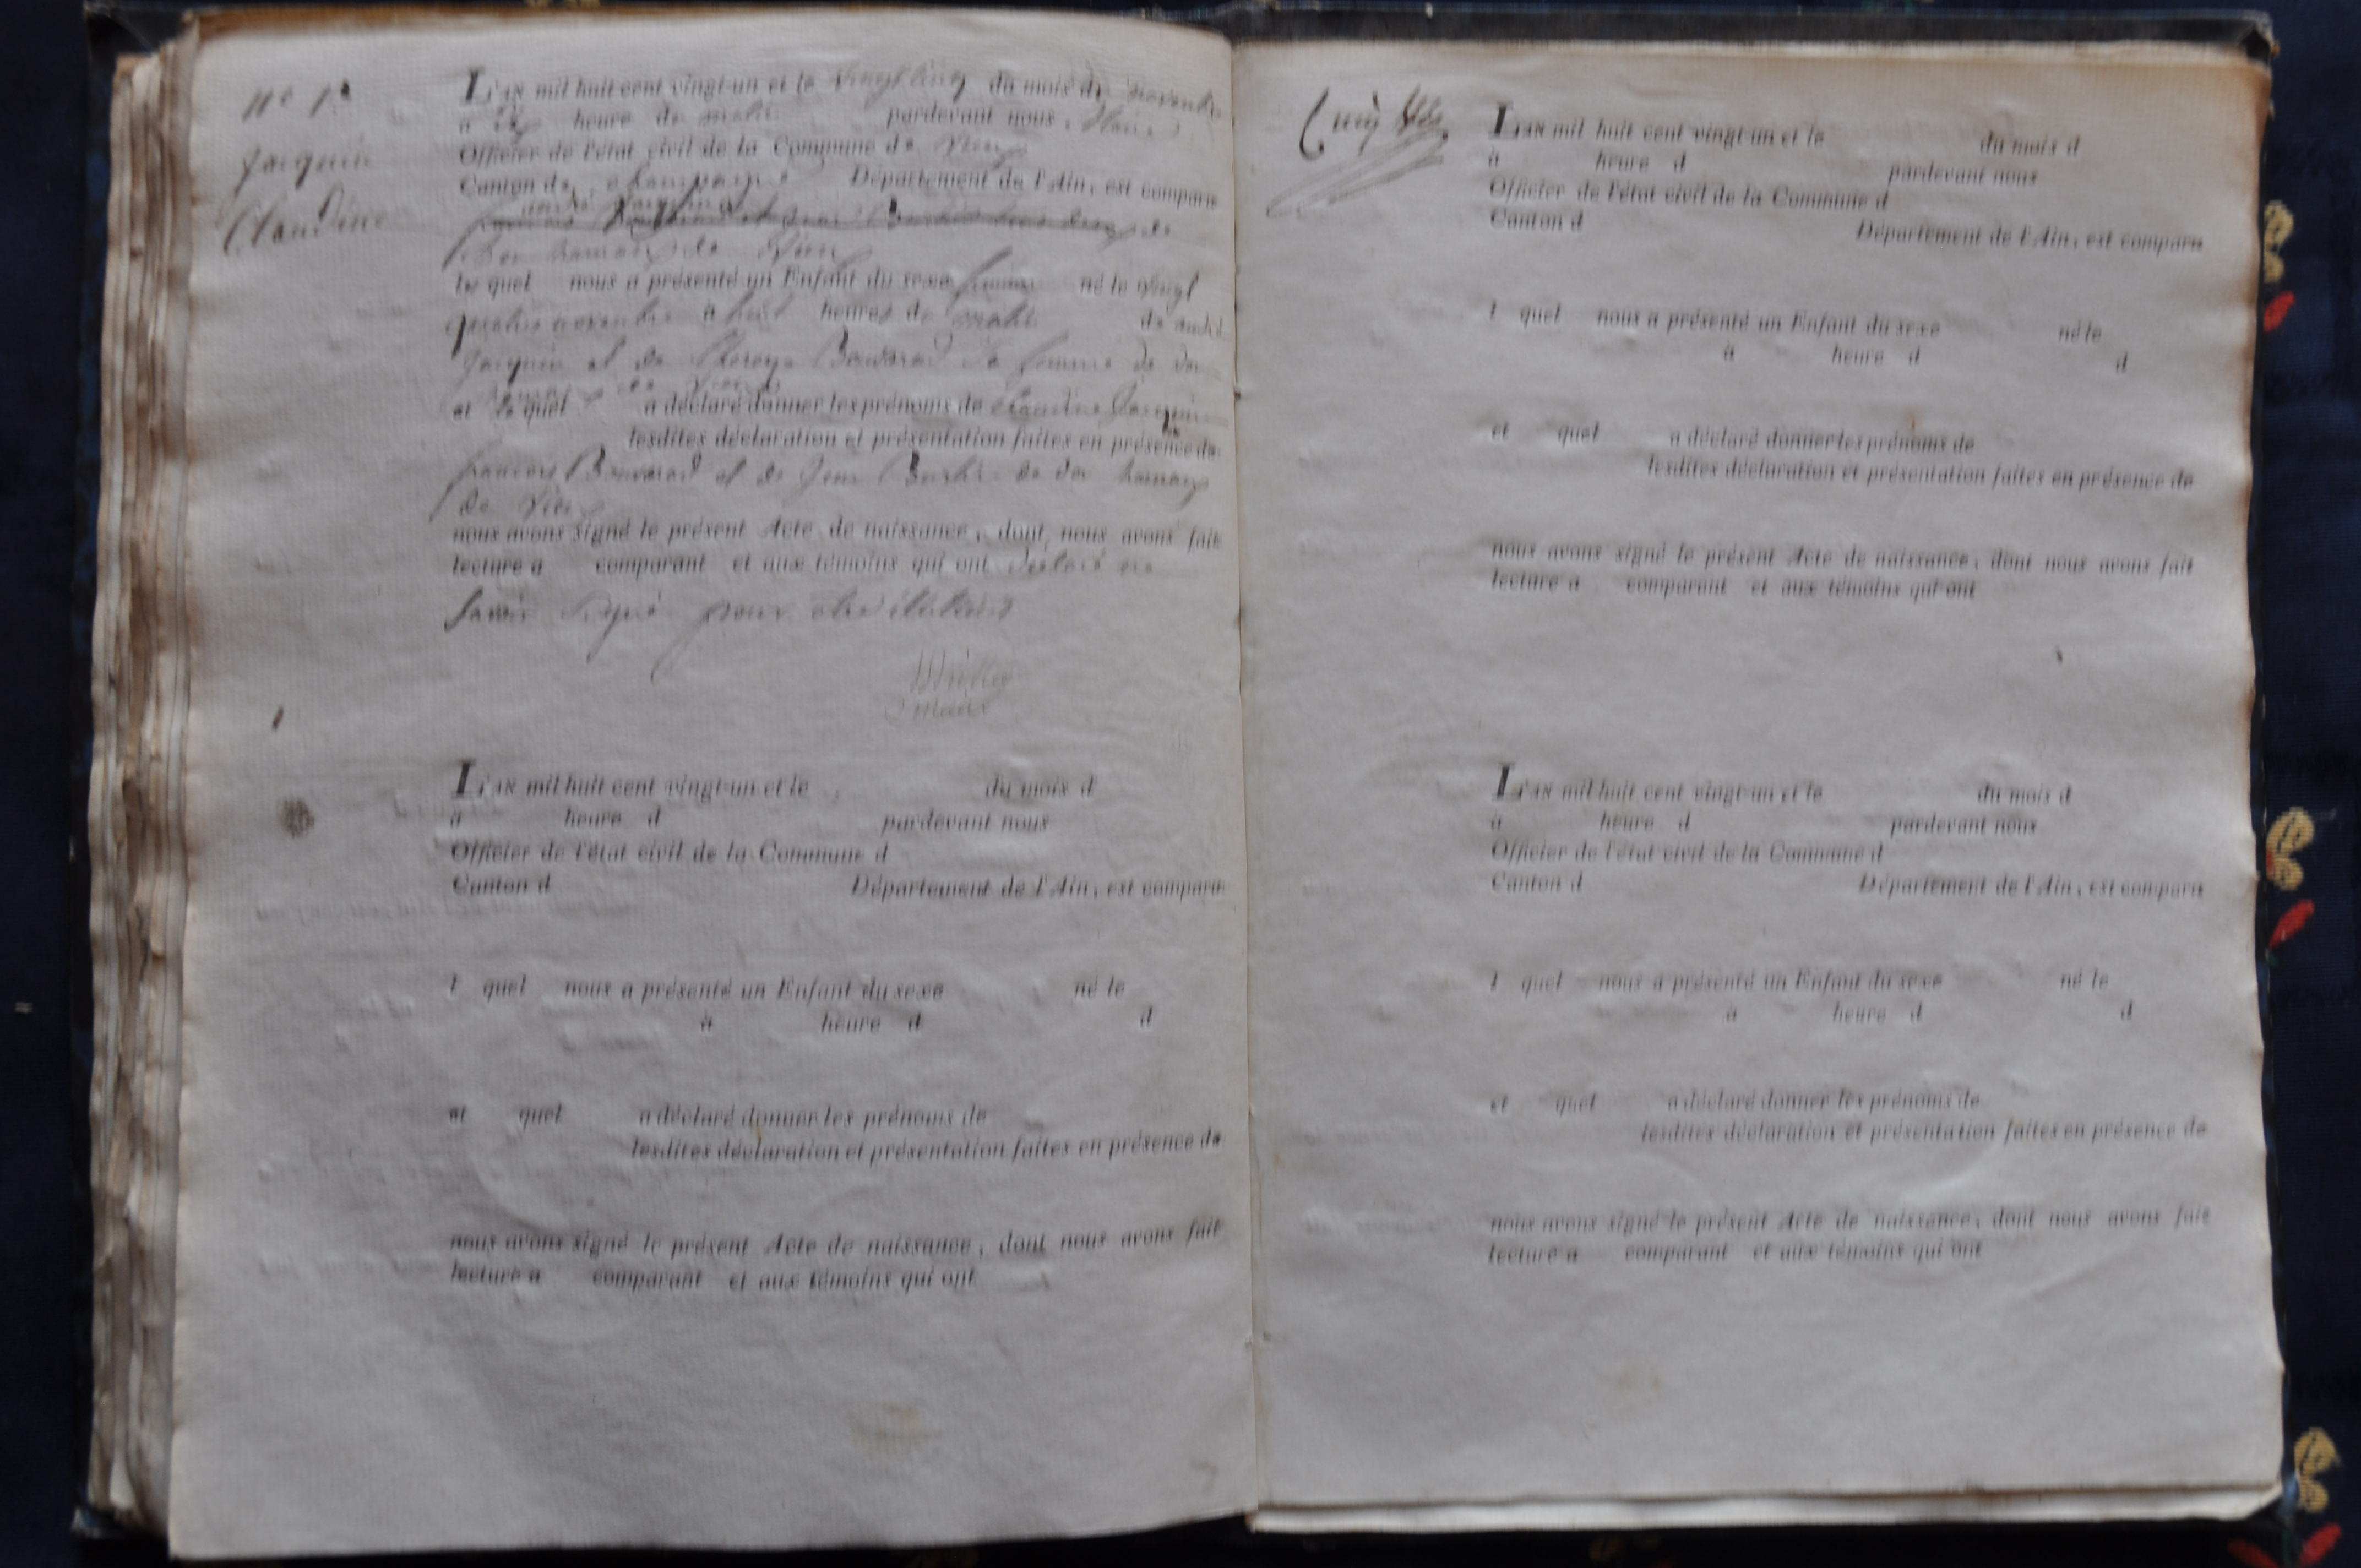 Jacquin
Claudine
L'AN mil huit cent vingt-un et le vingt cinq du mois de novembre
à dix heure de matin pardevant nous Maire
Officier de l'état civil de la Commune de Vieu
Canton de champagne Département de l'Ain, est comparu
andré Jacquin
de Vieu
le quel nous a présenté un Enfant du sexe né le vingt
quatre novembre à huit heures de matin de andré
Jacquin et de Bouvard sa femme de
de Vieu
et le quel a déclaré donner les prénoms de claudine Jacquin
lesdites déclaration et présentation faites en présence de
francois Bouvard et de Jean de
de Vieu
nous avons signé le présent Acte de naissance, dont nous avons fait
lecture a comparant et aux témoins qui ont déclaré ne
savoir signé pour être
maire
L'AN mil huit cent vingt-un et le du mois d
à heure d pardevant nous
Officier de l'état civil de la Commune d
Canton d Département de l'Ain, est comparu
l quel nous a présenté un Enfant du sexe né le
à heure d d
et quel a déclaré donner les prénoms de
lesdites déclaration et présentation faites en présence de
nous avons signé le présent Acte de naissance, dont nous avons fait
lecture a comparant et aux témoins qui ont
L'AN mil huit cent vingt-un et le du mois d
à heure d pardevant nous
Officier de l'état civil de la Commune d
Canton d Département de l'Ain, est comparu
l quel nous a présenté un Enfant du sexe né le
à heure d d
et quel a déclaré donner les prénoms de
lesdites déclaration et présentation faites en présence de
nous avons signé le présent Acte de naissance, dont nous avons fait
lecture a comparant et aux témoins qui ont
L'AN mil huit cent vingt-un et le du mois d
à heure d pardevant nous
Officier de l'état civil de la Commune d
Canton d Département de l'Ain, est comparu
l quel nous a présenté un Enfant du sexe né le
à heure d d
et quel a déclaré donner les prénoms de
lesdites déclaration et présentation faites en présence de
nous avons signé le présent Acte de naissance, dont nous avons fait
lecture a comparant et aux témoins qui ont